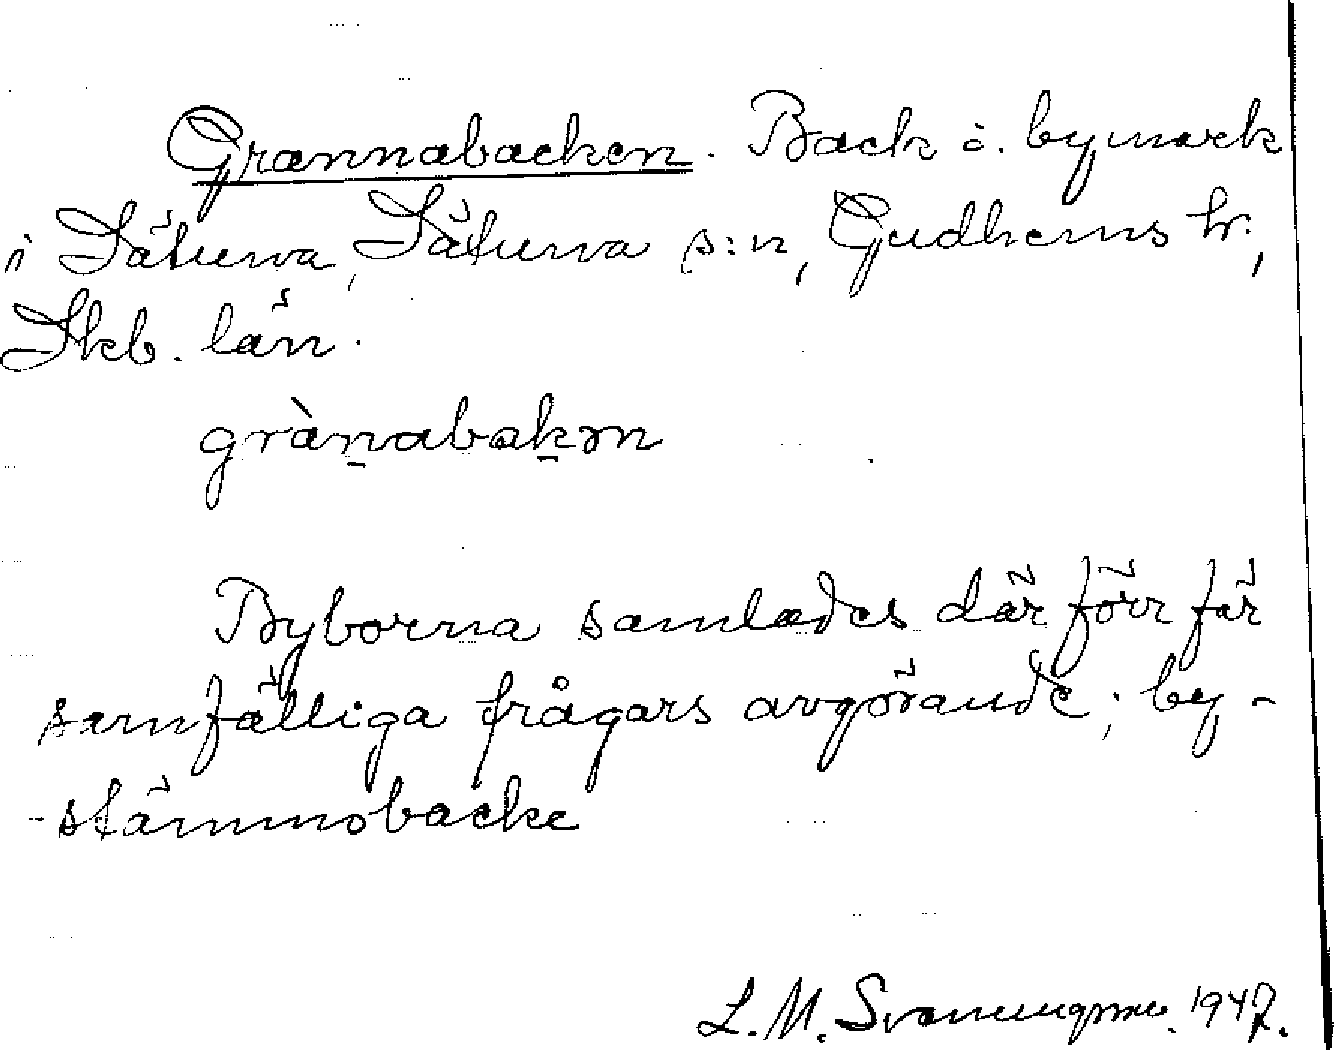 Grannabacken. Back å. bymark
i Sätuna, Sätuna s:n, Gudhems hr.,
Skb. län.
grànabakən
Byborna samlades där förr för
samfälliga frågars avgörande; by-
-stämmobacke
L. M. 1947.